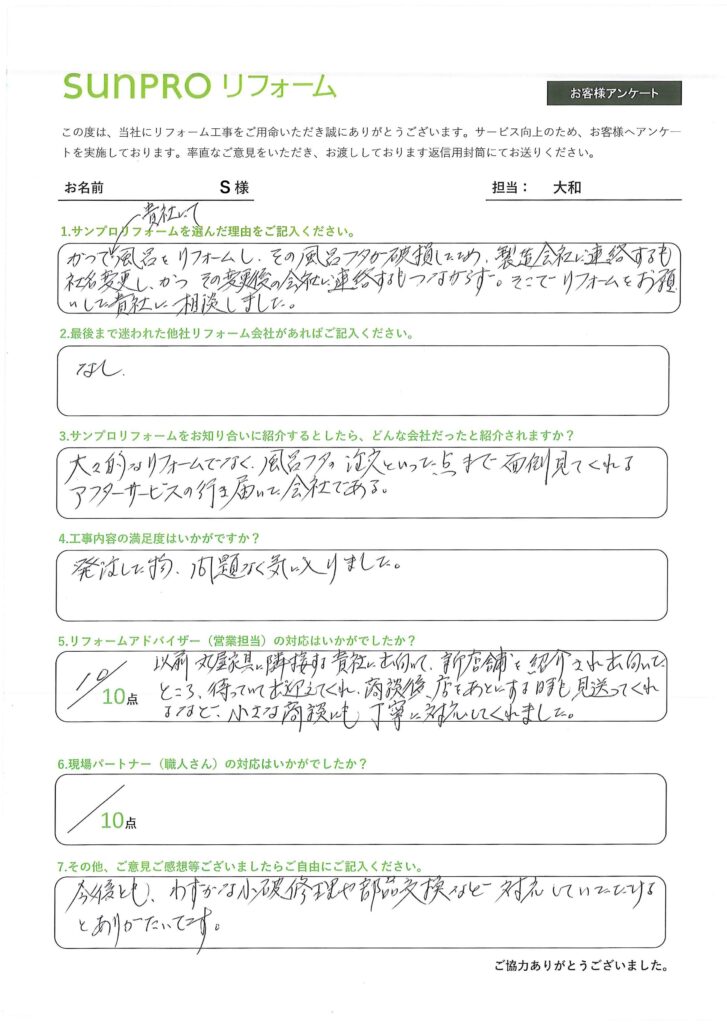 SUNPRO リフォーム
お客様アンケート
この度は、当社にリフォーム工事をご用命いただき誠にありがとうございます。サービス向上のため、お客様へアンケー
トを実施しております。率直なご意見をいただき、お渡ししております返信用封筒にてお送りください。
お名前 S 様 担当： 大和
貴社にて
1.サンプロリフォームを選んだ理由をご記入ください。
かつて風呂をリフォームし、その風呂フタが破損したため、製造会社に連絡するも
社名変更し、かつ その変更後の会社に連絡するもつながらず。そこでリフォームをお願
いした貴社に相談しました。
2.最後まで迷われた他社リフォーム会社があればご記入ください。
なし.
3.サンプロリフォームをお知り合いに紹介するとしたら、どんな会社だったと紹介されますか？
大々的なリフォームでなく、風呂フタの注文といった点まで面倒見てくれる
アフターサービスの行き届いた会社である。
4.工事内容の満足度はいかがですか？
発注した物、問題なく気に入りました。
5.リフォームアドバイザー（営業担当）の対応はいかがでしたか？
10/10点
以前 丸屋家具に隣接する貴社に出向いて、新店舗を紹介され出向いた
ところ、待っていて出迎えてくれ、商談後、店をあとにする時も見送ってくれ
るなど、小さな商談にも丁寧に対応してくれました。
6.現場パートナー（職人さん）の対応はいかがでしたか？
/10点
7.その他、ご意見ご感想等ございましたらご自由にご記入ください。
今後とも、わずかな小破修理や部品交換など対応していただける
とありがたいです。
ご協力ありがとうございました。